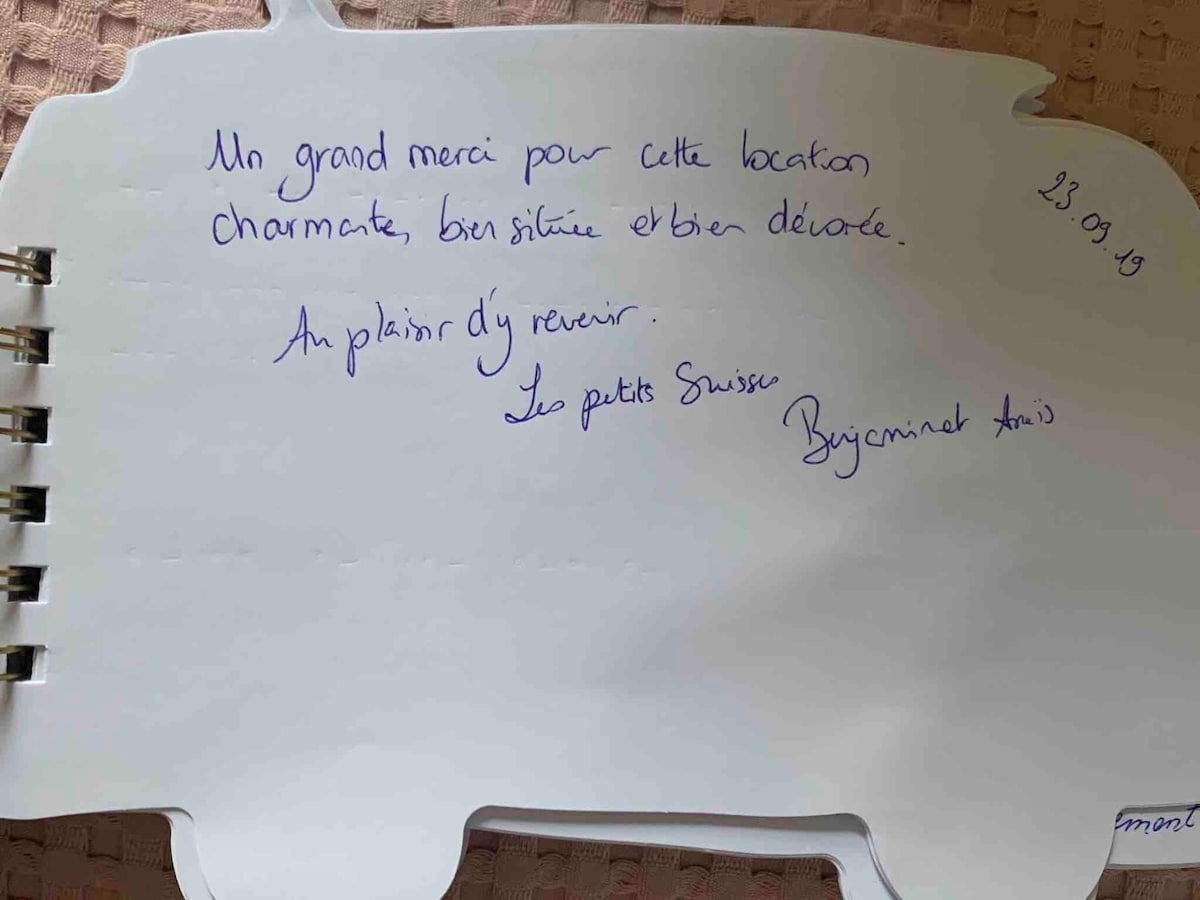 Un grand merci pour cette location
charmante, bien située et bien décorée.
23.09.19
Au plaisir d'y revenir.
Les petits Suisses
Benjamin et Anaïs
ement